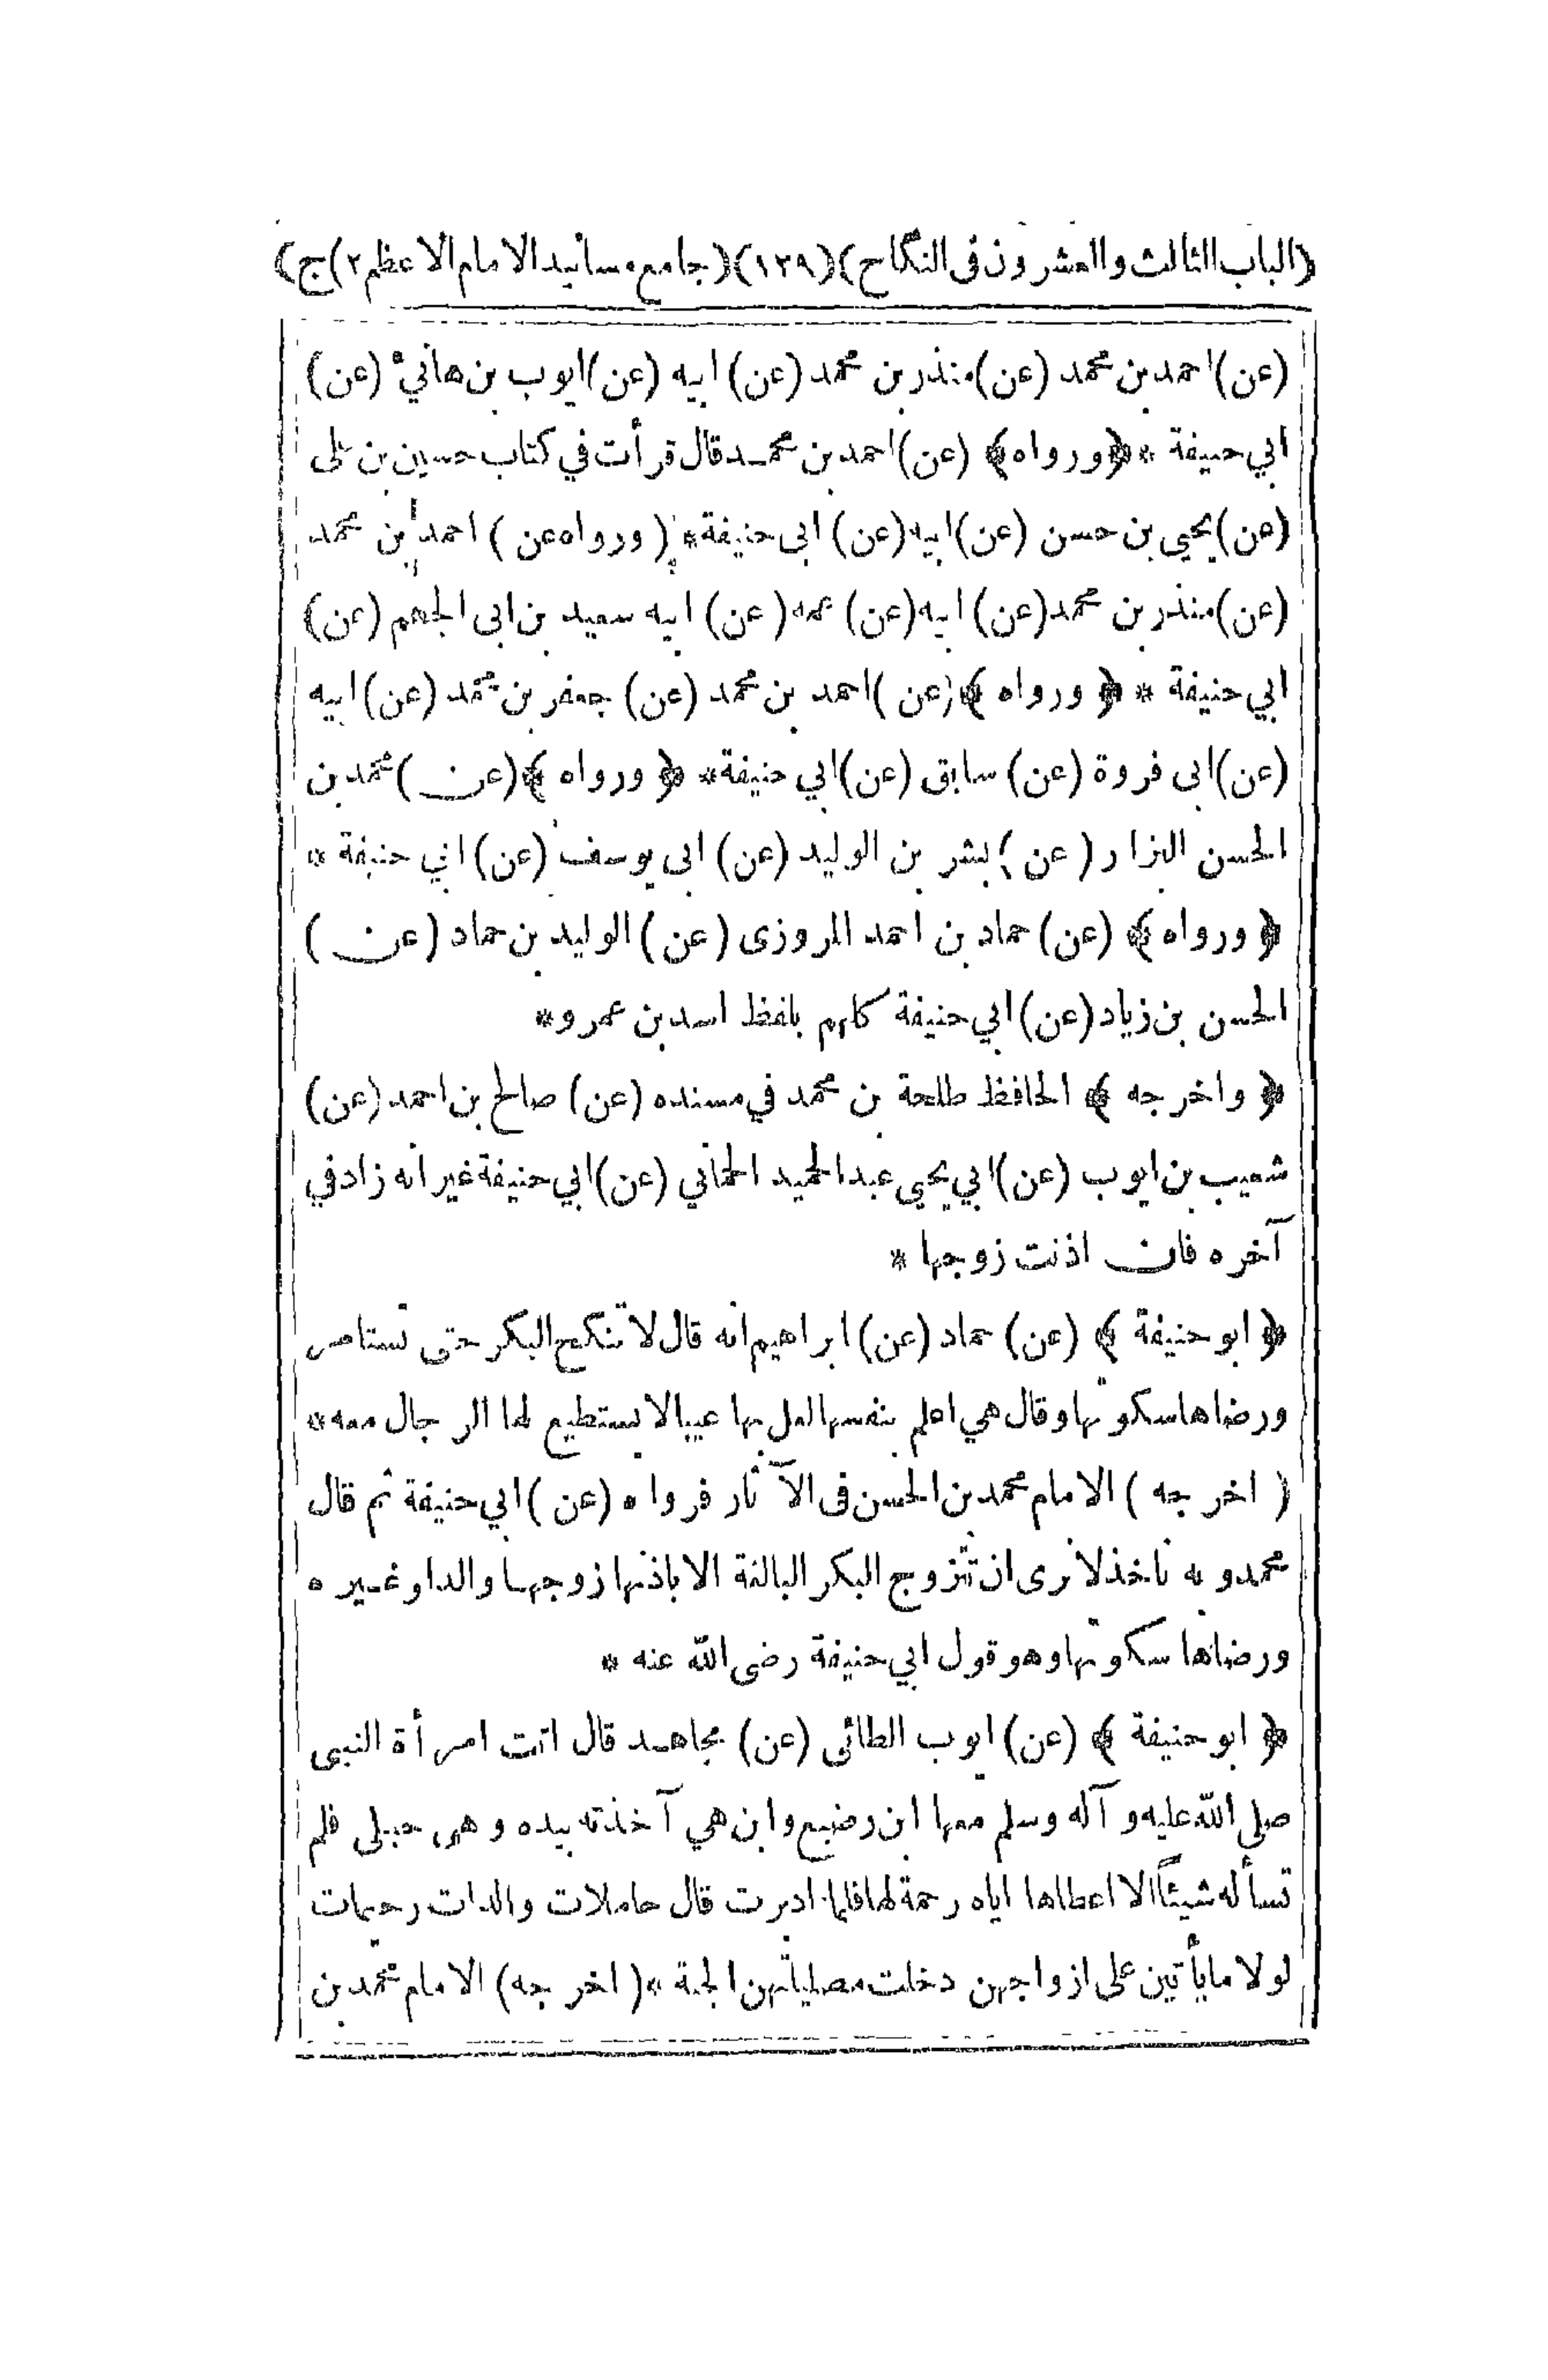 (الباب الثالث والعشرون فى النكاح) (١٢٩) (جامع مسانيد الامام الاعظم ٢) ج)
(عن) احمد بن محمد (عن) منذر بن محمد (عن) ابيه (عن) ايوب بن هانئ (عن)
ابي حنيفة * ﴿ورواه﴾ (عن) احمد بن محمد قال قرأت في كتاب حسين بن على
(عن) يحيى بن حسن (عن) ابيه (عن) ابى حنيفة * (ورواه عن) احمد بن محمد
(عن) منذر بن محمد (عن) ابيه (عن) عمه (عن) ابيه سعيد بن ابى الجهم (عن)
ابي حنيفة * ﴿ورواه﴾ (عن) احمد بن محمد (عن) جعفر بن محمد (عن) ابيه
(عن) ابى فروة (عن) سابق (عن) ابي حنيفة * ﴿ورواه﴾ (عن) محمد بن
الحسن البزار (عن) بشر بن الوليد (عن) ابى يوسف (عن) ابي حنيفة *
﴿ورواه﴾ (عن) حماد بن احمد المروزى (عن) الوليد بن حماد (عن)
الحسن بن زياد (عن) ابي حنيفة كلهم بلفظ اسد بن عمرو *
﴿واخرجه﴾ الحافظ طلحة بن محمد في مسنده (عن) صالح بن احمد (عن)
شعيب بن ايوب (عن) ابي يحيى عبد الحميد الحماني (عن) ابي حنيفة غير انه زاد في
آخره فان اذنت زوجها *
﴿ابو حنيفة﴾ (عن) حماد (عن) ابراهيم انه قال لا تنكح البكر حتى تستامر
ورضاها سكوتها وقال هي اعلم بنفسها لعل بها عيبا لا يستطيع لها الرجال معه *
(اخرجه) الامام محمد بن الحسن فى الآثار فرواه (عن) ابي حنيفة ثم قال
محمد وبه ناخذ لا نرى ان تتزوج البكر البالغة الا باذنها زوجها والد او غيره
ورضاها سكوتها وهو قول ابي حنيفة رضى الله عنه *
﴿ابو حنيفة﴾ (عن) ايوب الطائى (عن) مجاهد قال اتت امرأة النبى
صلى الله عليه وآله وسلم معها ابن رضيع وابن هي آخذته بيده وهى حبلى فلم
تسأله شيئاً الا اعطاها اياه رحمة لها فلما ادبرت قال حاملات والدات رحيمات
لولا ما يأتين على ازواجهن دخلت مصلياتهن الجنة * (اخرجه) الامام محمد بن